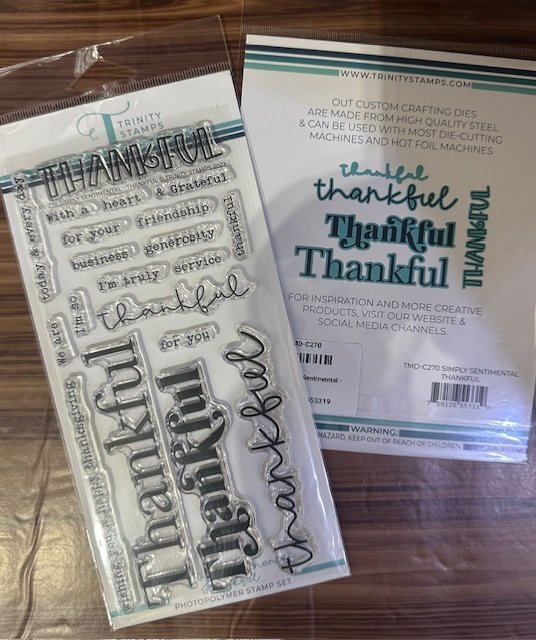 TRINITY
STAMPS
THANKFUL
SIMPLY SENTIMENTAL - THANKFUL © TRINITY STAMPS
With a heart & Grateful
for your friendship
business generosity
I'm truly service
thankful
today & every day
We are I'm so
thankful
for you
Thankful
Thankful
thankful
wishing you a happy thanksgiving
PHOTOPOLYMER STAMP SET
WWW.TRINITYSTAMPS.COM
OUT CUSTOM CRAFTING DIES
ARE MADE FROM HIGH QUALITY STEEL
& CAN BE USED WITH MOST DIE-CUTTING
MACHINES AND HOT FOIL MACHINES
thankful
thankful
Thankful
Thankful
THANKFUL
FOR INSPIRATION AND MORE CREATIVE
PRODUCTS, VISIT OUR WEBSITE &
SOCIAL MEDIA CHANNELS.
TMD-C270
Sentimental -
53319
TMD-C270 SIMPLY SENTIMENTAL
THANKFUL
WARNING:
HAZARD, KEEP OUT OF REACH OF CHILDREN.